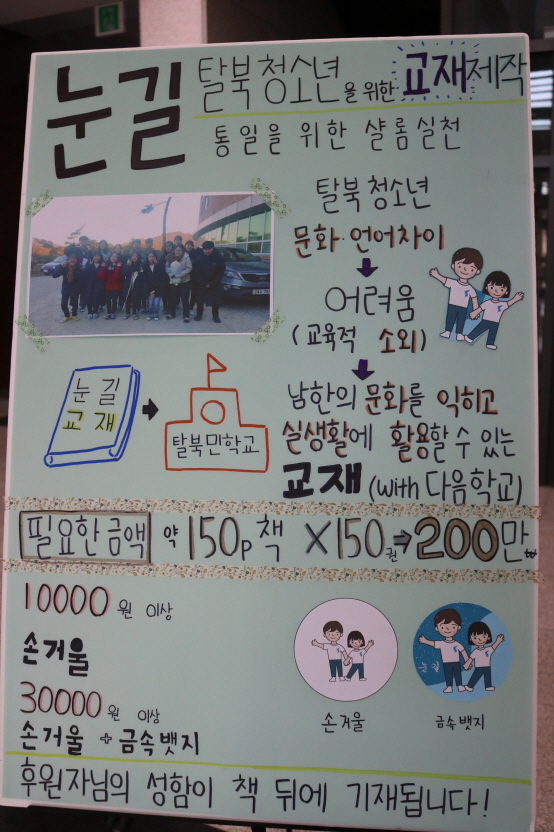 눈길 탈북청소년을 위한 교재제작
통일을 위한 샬롬실천
탈북청소년
문화·언어차이
어려움
(교육적 소외)
남한의 문화를 익히고
실생활에 활용할 수 있는
교재 (with 다음학교)
눈길
교재
탈북민학교
필요한금액 약 150p 책 X150권⇒200만₩
10000원 이상
손거울
30000원 이상
손거울 + 금속뱃지
눈길
손거울
금속뱃지
후원자님의 성함이 책 뒤에 기재됩니다!